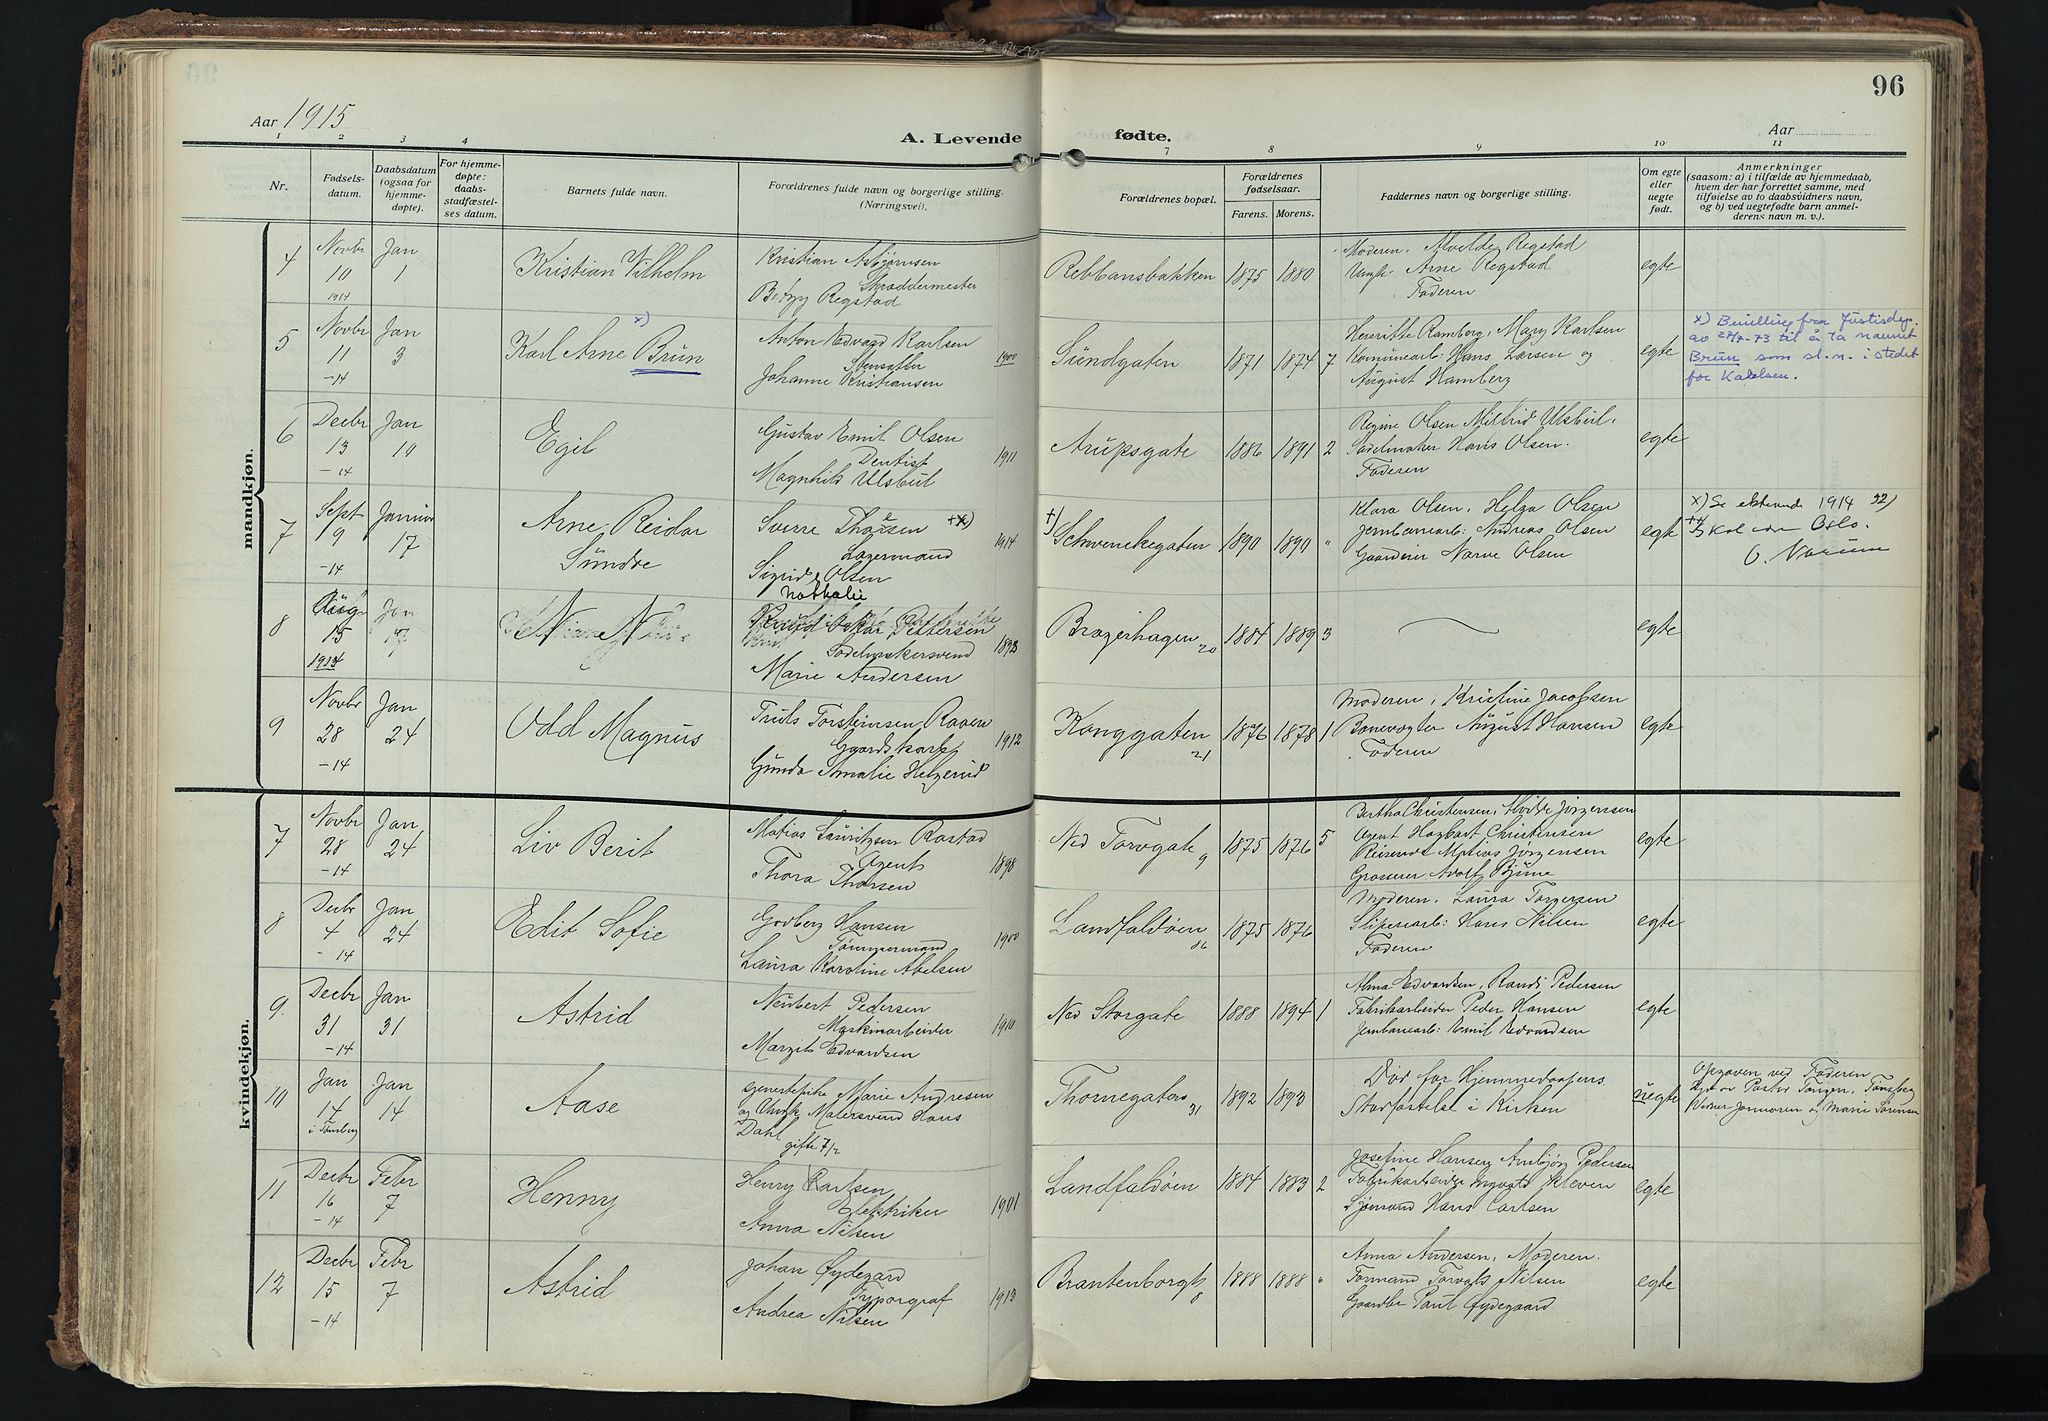 96
Aar 1915
A. Levende
fødte.
Aar
1 2 3 4 7 8 9 10 11
Nr.
Fødsels-
datum.
Daabsdatum
(ogsaa for
hjemme-
døpte).
For hjemme-
døpte:
daabs-
stadfæstel-
ses datum.
Barnets fulde navn.
Forældrenes fulde navn og borgerlige stilling.
(Næringsvei).
Forældrenes bopæl.
Forældrenes
fødselsaar.
Farens. Morens.
Faddernes navn og borgerlige stilling.
Om egte
eller
uegte
født.
Anmerkninger
(saasom: a) i tilfælde av hjemmedaab,
hvem der har forrettet samme, med
tilføielse av to daabsvidners navn,
og b) ved uegtefødte barn anmel-
derens navn m. v.).
mandkjøn.
4
Novbr
10
1914
Jan
1
Kristian Vilhelm
Kristian Asbjørnsen
Skræddermester
Regstad
Rebbansbakken
1875 1880
Moderen, Alvilde Regstad
Arne Regstad
Faderen
egte
5
Novbr
11
-14
Jan
3
Karl Arne Brun x)
Anton Edvard Karlsen
Johanne Kristiansen
1900
Sündgaten
1871 1874 7
Henriette Ramberg, Mary Karlsen
Komünearb: Hans Larsen og
August Hamberg
egte
x) Bevilling fra Justisdep.
av 27/7-73 til å ta navnet
Brun som sl.n. i stedet
for Karlsen.
6
Decbr
13
-14
Jan
10
Egil
Gustav Emil Olsen
Dentist
Magnhild Ulsbül
1911
Arüpsgate
1886 1891 2
Regine Olsen Milbrid Ulsbül.
Sadelmaker Hans Olsen.
Faderen
egte
7
Sept
19
-14
Januar
17
Arne Reidar
Sündre
Sverre Thorsen +x)
Lagermand
Sigrid Olsen
Nathalie
1914
+) Schwenckegaten
1890 1890 "
Klara Olsen, Helga Olsen
Jernbanearb: Andreas Olsen
Gaardeier Narve Olsen
egte
x) Se 1914
Oslo.
8
Aug
15
1914
Jan
17
Knud Oskar Pettersen
Sadelmakersvend
Marie Andersen
1893
Bragerhagen 20
1884 1889 3
egte
9
Novbr
28
-14
Jan
24
Odd Magnus
Truls Torsteinsen Raaen
Gaardskarl
Gunda Amalie Helgerud
1912
Konggaten 21
1876 1878 1
Moderen, Kristine Jacobsen
Banevogter August Hansen
Faderen
egte
kvindekjøn.
7
Novbr
28
-14
Jan
24
Liv Berit
Matias Lauritzsen Rastad
Agent
Thora Thorsen
1898
Ned Torvgate 9
1875 1876 5
Bertha Christensen, Jørgensen
Agent Hagbart Christensen
Reisende Matias Jørgensen
Grosserer Adolf Bjune
egte
8
Decbr
4
-14
Jan
24
Edit Sofie
Godberg Hansen
Tømmermand
Laura Karoline Abelsen
1900
Landfaldøen 86
1875 1876
Moderen. Laura Torgersen
Sliperiarb: Hans Nilsen
Faderen
egte
9.
Decbr
31
-14
Jan
31
Astrid
Neubert Pedersen
Maskinarbeider
Margit Edvardsen
1910
Ned Storgate
1888 1894 1
Alma Edvardsen, Randi Pedersen
Fabrikarbeider Peder Hansen
Jernbanearb: Emil Edvardsen
egte
10
Jan
14
i Tønsberg
Jan
14
Aase
Marie Andresen
og Malersvend Hans
Dahl
gifte 7/2
Thornegaten 31
1892 1893
Død før Hjemmedaapens
Stadfæstelse i Kirken
üegte
Opgaven ved Faderen
Døpt av Pastor Tangen, Tønsberg
og Marie Sørensen
11
Decbr
16
-14
Febr
7
Henny
Henry Karlsen
Elektriker
Anna Nilsen
1901
Landfaldøen
1884 1883 2
Josefine Hansen, Anbjørg Pedersen
Fabrikarbeider Kleven
Sjømand Hans Carlsen
egte
12
Decbr
15
-14
Febr
7
Astrid
Johan Øydegard
Typograf
Andrea Nilsen
1913
Brantenborggt 8
1888 1888 "
Anna Andersen, Moderen.
Formand Torvals Nilsen
Gaardbr Paul Øydegaard
egte